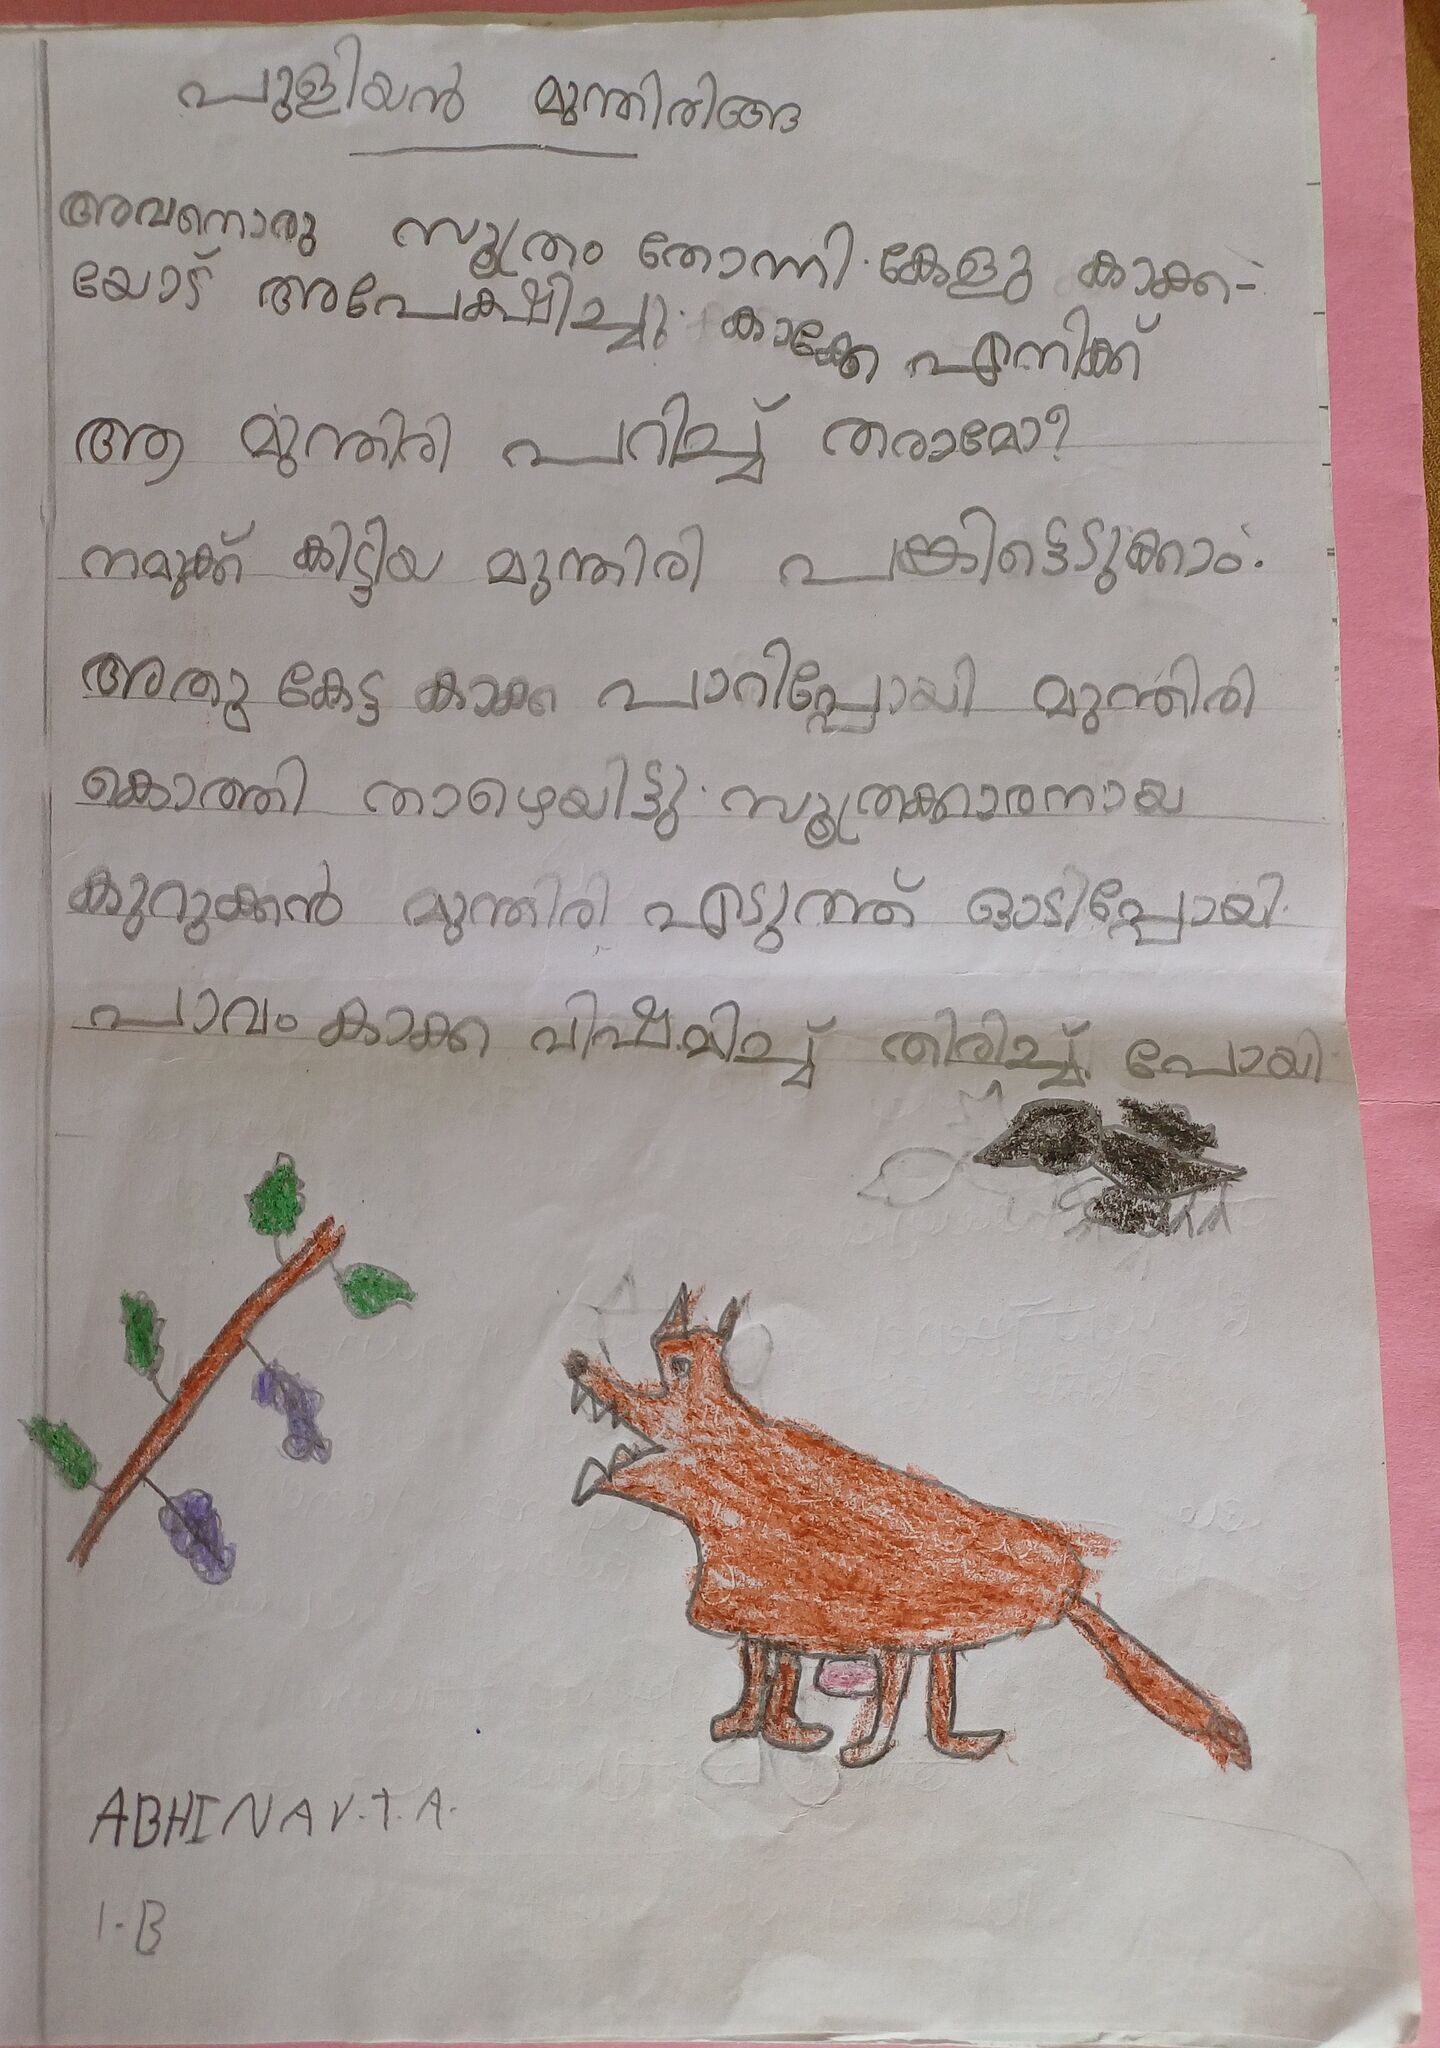 പുളിയൻ മുന്തിരിങ്ങ
അവനൊരു സൂത്രം തോന്നി. കേളു കാക്ക-
യോട് അപേക്ഷിച്ചു. കാക്കേ എനിക്ക്
ആ മുന്തിരി പറിച്ച് തരാമോ?
നമുക്ക് കിട്ടിയ മുന്തിരി പങ്കിട്ടെടുക്കാം.
അതു കേട്ട കാക്ക പാറിപ്പോയി മുന്തിരി
കൊത്തി താഴെയിട്ടു. സൂത്രക്കാരനായ
കുറുക്കൻ മുന്തിരി എടുത്ത് ഓടിപ്പോയി.
പാവം കാക്ക വിഷമിച്ച് തിരിച്ച് പോയി.
ABHINAV.T.A.
1-B